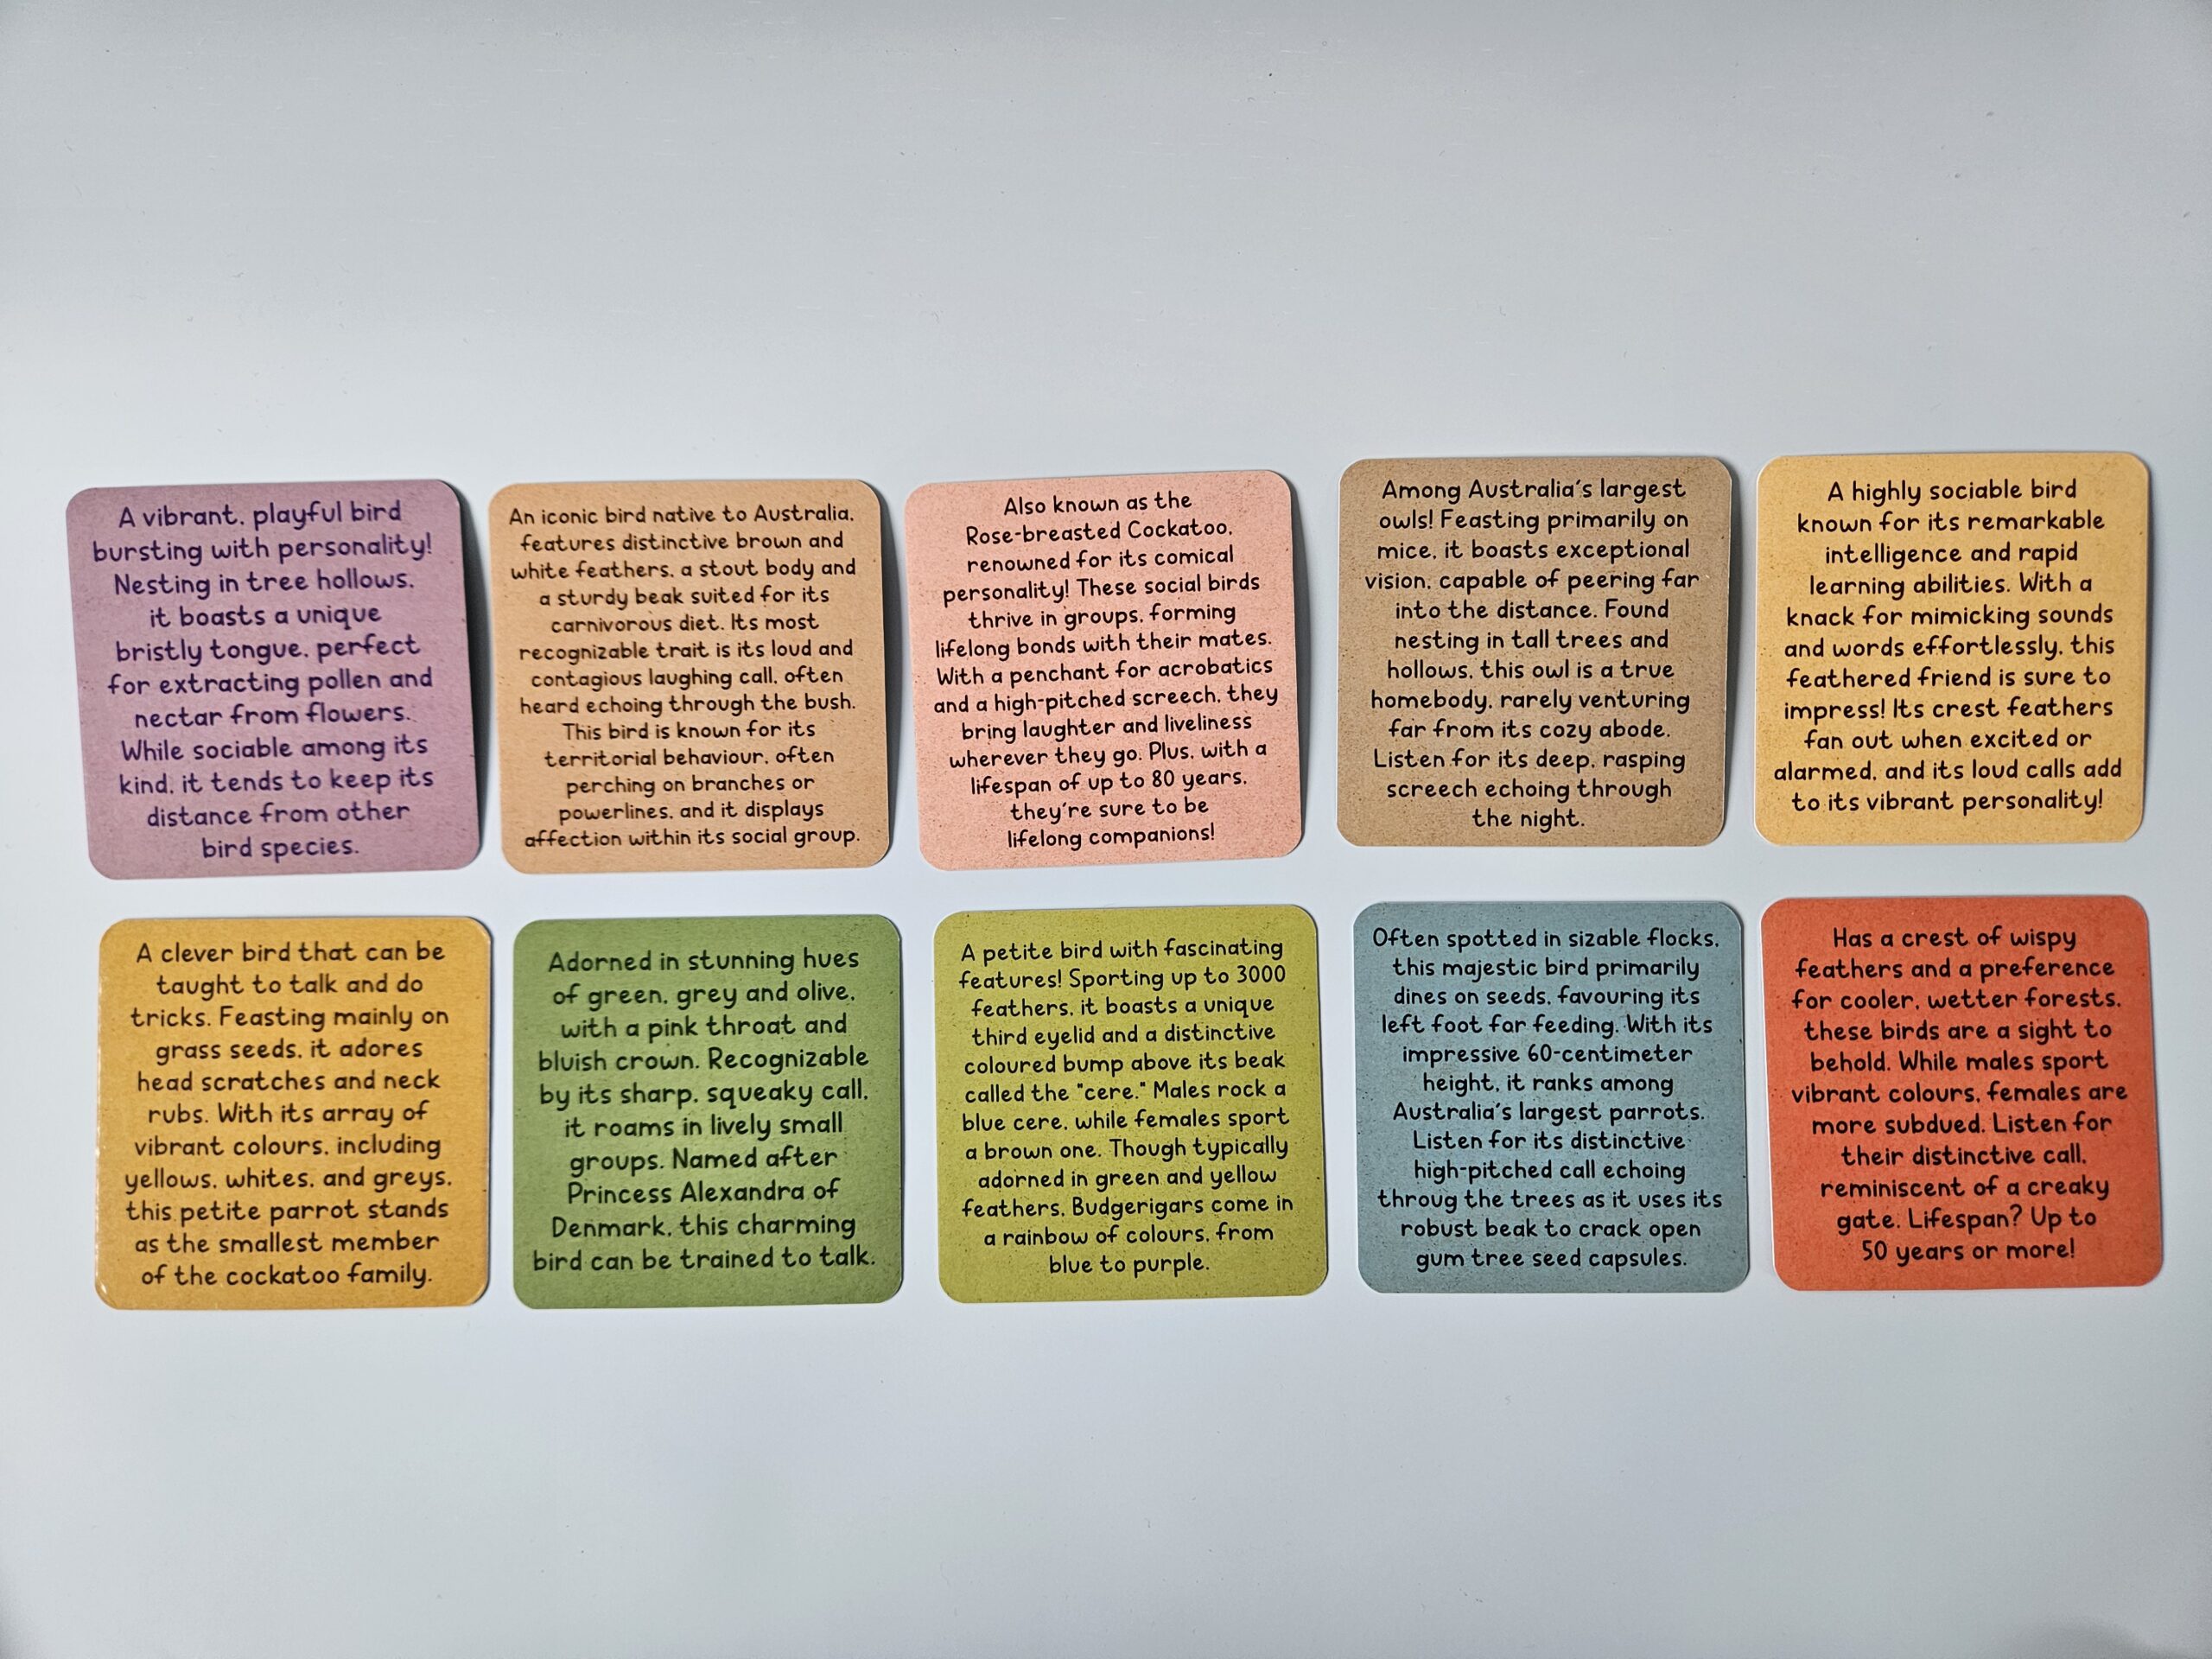 A vibrant, playful bird
bursting with personality!
Nesting in tree hollows,
it boasts a unique
bristly tongue, perfect
for extracting pollen and
nectar from flowers.
While sociable among its
kind, it tends to keep its
distance from other
bird species.
An iconic bird native to Australia,
features distinctive brown and
white feathers, a stout body and
a sturdy beak suited for its
carnivorous diet. Its most
recognizable trait is its loud and
contagious laughing call, often
heard echoing through the bush.
This bird is known for its
territorial behaviour, often
perching on branches or
powerlines, and it displays
affection within its social group.
Also known as the
Rose-breasted Cockatoo,
renowned for its comical
personality! These social birds
thrive in groups, forming
lifelong bonds with their mates.
With a penchant for acrobatics
and a high-pitched screech, they
bring laughter and liveliness
wherever they go. Plus, with a
lifespan of up to 80 years,
they're sure to be
lifelong companions!
Among Australia's largest
owls! Feasting primarily on
mice, it boasts exceptional
vision, capable of peering far
into the distance. Found
nesting in tall trees and
hollows, this owl is a true
homebody, rarely venturing
far from its cozy abode.
Listen for its deep, rasping
screech echoing through
the night.
A highly sociable bird
known for its remarkable
intelligence and rapid
learning abilities. With a
knack for mimicking sounds
and words effortlessly, this
feathered friend is sure to
impress! Its crest feathers
fan out when excited or
alarmed, and its loud calls add
to its vibrant personality!
A clever bird that can be
taught to talk and do
tricks. Feasting mainly on
grass seeds, it adores
head scratches and neck
rubs. With its array of
vibrant colours, including
yellows, whites, and greys,
this petite parrot stands
as the smallest member
of the cockatoo family.
Adorned in stunning hues
of green, grey and olive,
with a pink throat and
bluish crown. Recognizable
by its sharp, squeaky call,
it roams in lively small
groups. Named after
Princess Alexandra of
Denmark, this charming
bird can be trained to talk.
A petite bird with fascinating
features! Sporting up to 3000
feathers, it boasts a unique
third eyelid and a distinctive
coloured bump above its beak
called the "cere." Males rock a
blue cere, while females sport
a brown one. Though typically
adorned in green and yellow
feathers, Budgerigars come in
a rainbow of colours, from
blue to purple.
Often spotted in sizable flocks,
this majestic bird primarily
dines on seeds, favouring its
left foot for feeding. With its
impressive 60-centimeter
height, it ranks among
Australia's largest parrots.
Listen for its distinctive
high-pitched call echoing
throug the trees as it uses its
robust beak to crack open
gum tree seed capsules.
Has a crest of wispy
feathers and a preference
for cooler, wetter forests,
these birds are a sight to
behold. While males sport
vibrant colours, females are
more subdued. Listen for
their distinctive call,
reminiscent of a creaky
gate. Lifespan? Up to
50 years or more!